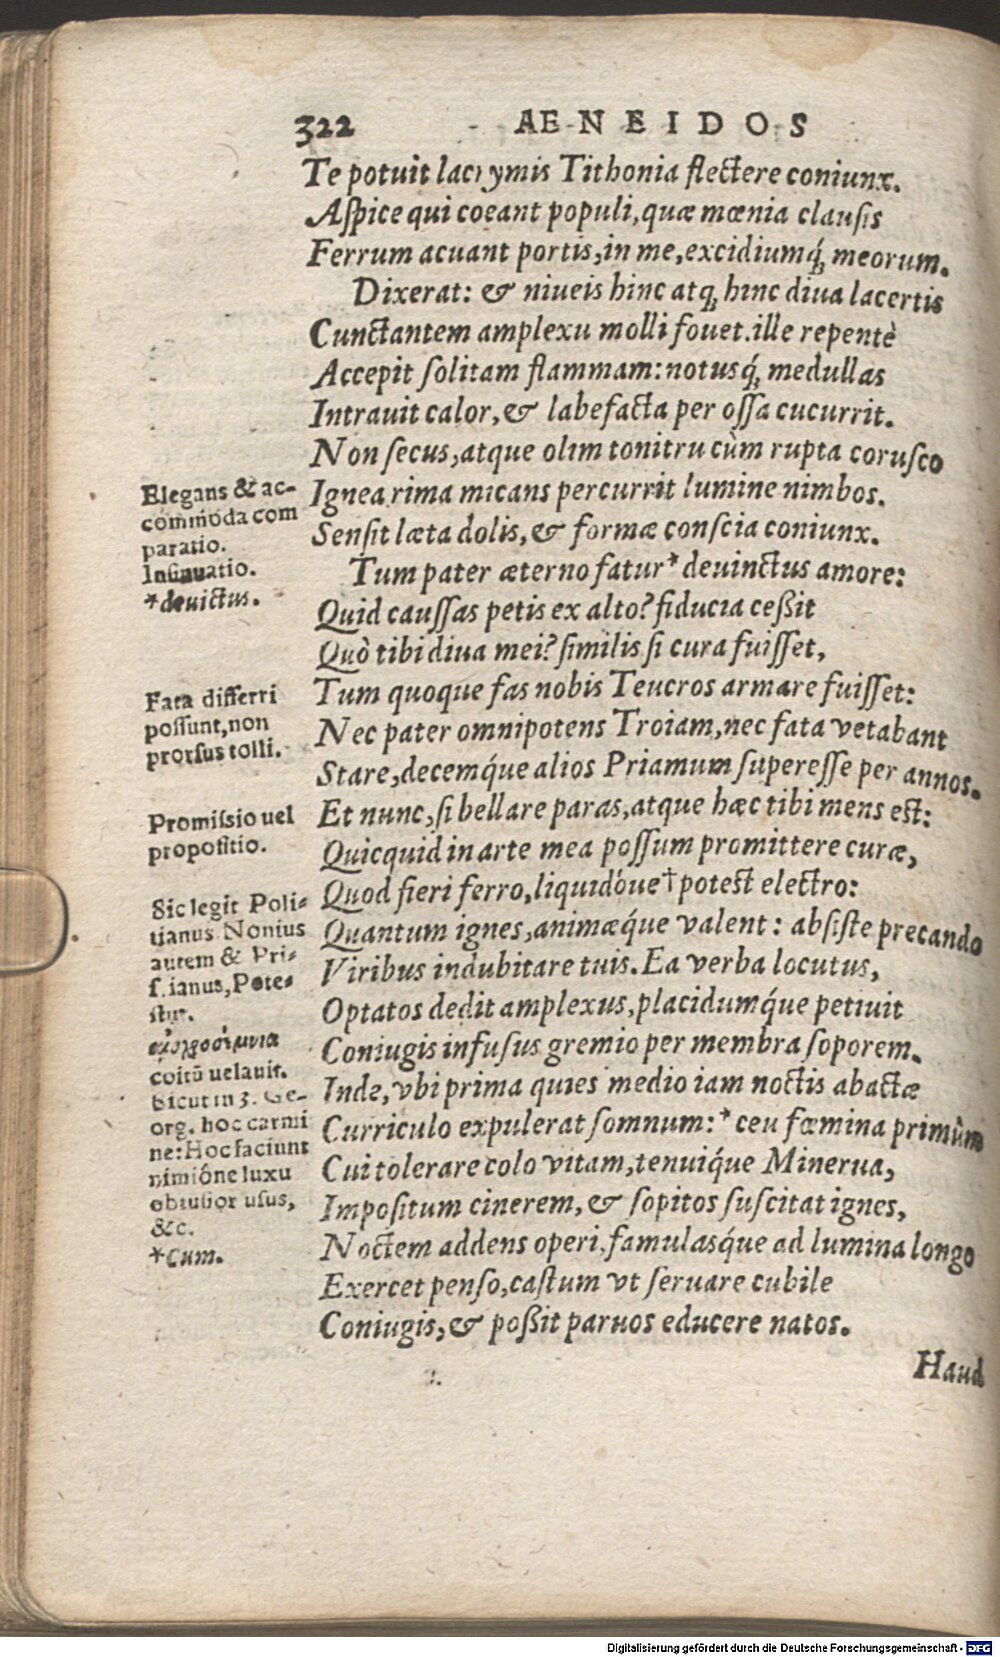 322 AENEIDOS
Te potuit lacrymis Tithonia flectere coniunx.
Aſpice qui coeant populi, quæ mœnia clauſis
Ferrum acuant portis, in me, excidiumq́; meorum.
Dixerat: & niueis hinc atq; hinc diua lacertis
Cunctantem amplexu molli fouet. ille repentè
Accepit ſolitam flammam: notusq́; medullas
Intrauit calor, & labefacta per oſſa cucurrit.
Non ſecus, atque olim tonitru cùm rupta coruſco
Ignea rima micans percurrit lumine nimbos.
Senſit læta dolis, & formæ conſcia coniunx.
Tum pater æterno fatur* deuinctus amore:
Quid cauſſas petis ex alto? fiducia ceßit
Quò tibi diua mei? ſimilis ſi cura fuiſſet,
Tum quoque fas nobis Teucros armare fuiſſet:
Nec pater omnipotens Troiam, nec fata vetabant
Stare, decemq́ue alios Priamum ſupereſſe per annos.
Et nunc, ſi bellare paras, atque hæc tibi mens est:
Quicquid in arte mea poſſum promittere curæ,
Quod fieri ferro, liquidóue† potest electro:
Quantum ignes, animæq́ue valent: abſiſte precando
Viribus indubitare tuis. Ea verba locutus,
Optatos dedit amplexus, placidumq́ue petiuit
Coniugis infuſus gremio per membra ſoporem.
Inde, vbi prima quies medio iam noctis abactæ
Curriculo expulerat ſomnum: * ceu fœmina primùm
Cui tolerare colo vitam, tenuiq́ue Minerua,
Impoſitum cinerem, & ſopitos ſuſcitat ignes,
Noctem addens operi, famulasq́ue ad lumina longo
Exercet penſo, caſtum vt ſeruare cubile
Coniugis, & poßit paruos educere natos.
Haud
Elegans & ac-
commoda com
paratio.
Inſinuatio.
*deuictus.
Fata differri
poſſunt, non
prorſus tolli.
Promiſsio uel
propoſitio.
Sic legit Poli-
tianus Nonius
autem & Pri-
ſcianus, Pote-
ſtur.
coitũ uelauit.
Sicut in 3. Ge-
org. hoc carmi
ne: Hoc faciunt
nimióne luxu
obtuſior uſus,
&c.
*Cum.
Digitalisierung gefördert durch die Deutsche Forschungsgemeinschaft - DFG